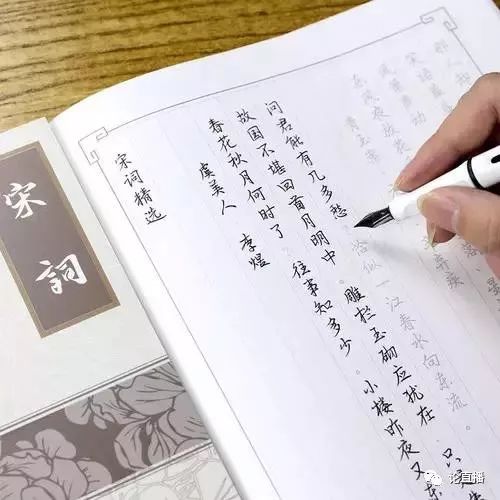 宋詞
宋词精选
虞美人 李煜
春花秋月何时了 往事知多少。小楼昨夜又东
故国不堪回首月明中。雕栏玉砌应犹在 只是
问君能有几多愁 恰似一江春水向东流。
青玉案 弃疾
东风夜放花
凤箫声动
那人却
论直播